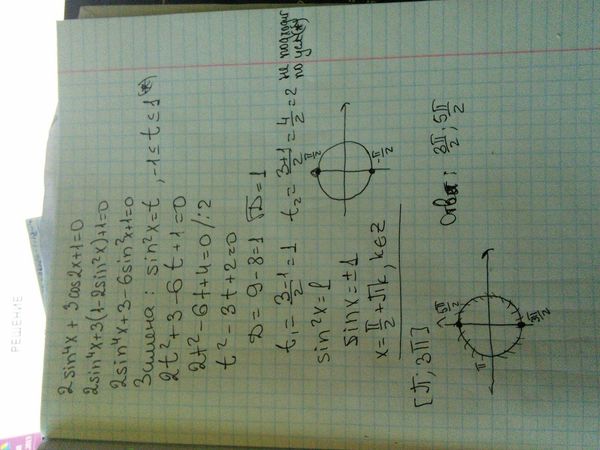 РЕШЕНИЕ
2sin⁴x + 3cos2x+1=0
2sin⁴x+3(1-2sin²x)+1=0
2sin⁴x+3-6sin²x+1=0
Замена: sin²x=t, -1≤t≤1(*)
2t²+3-6t+1=0
2t²-6t+4=0/:2
t²-3t+2=0
D=9-8=1 √D=1
t₁=(3-1)/2=1 t₂=(3+1)/2=4/2=2 не подходит
по усл(*)
sin²x=1
sinx=±1
x=π/2+πk, k∈Z
π/2
-π/2
[π; 3π]
5π/2
π
3π/2
Ответ: 3π/2; 5π/2